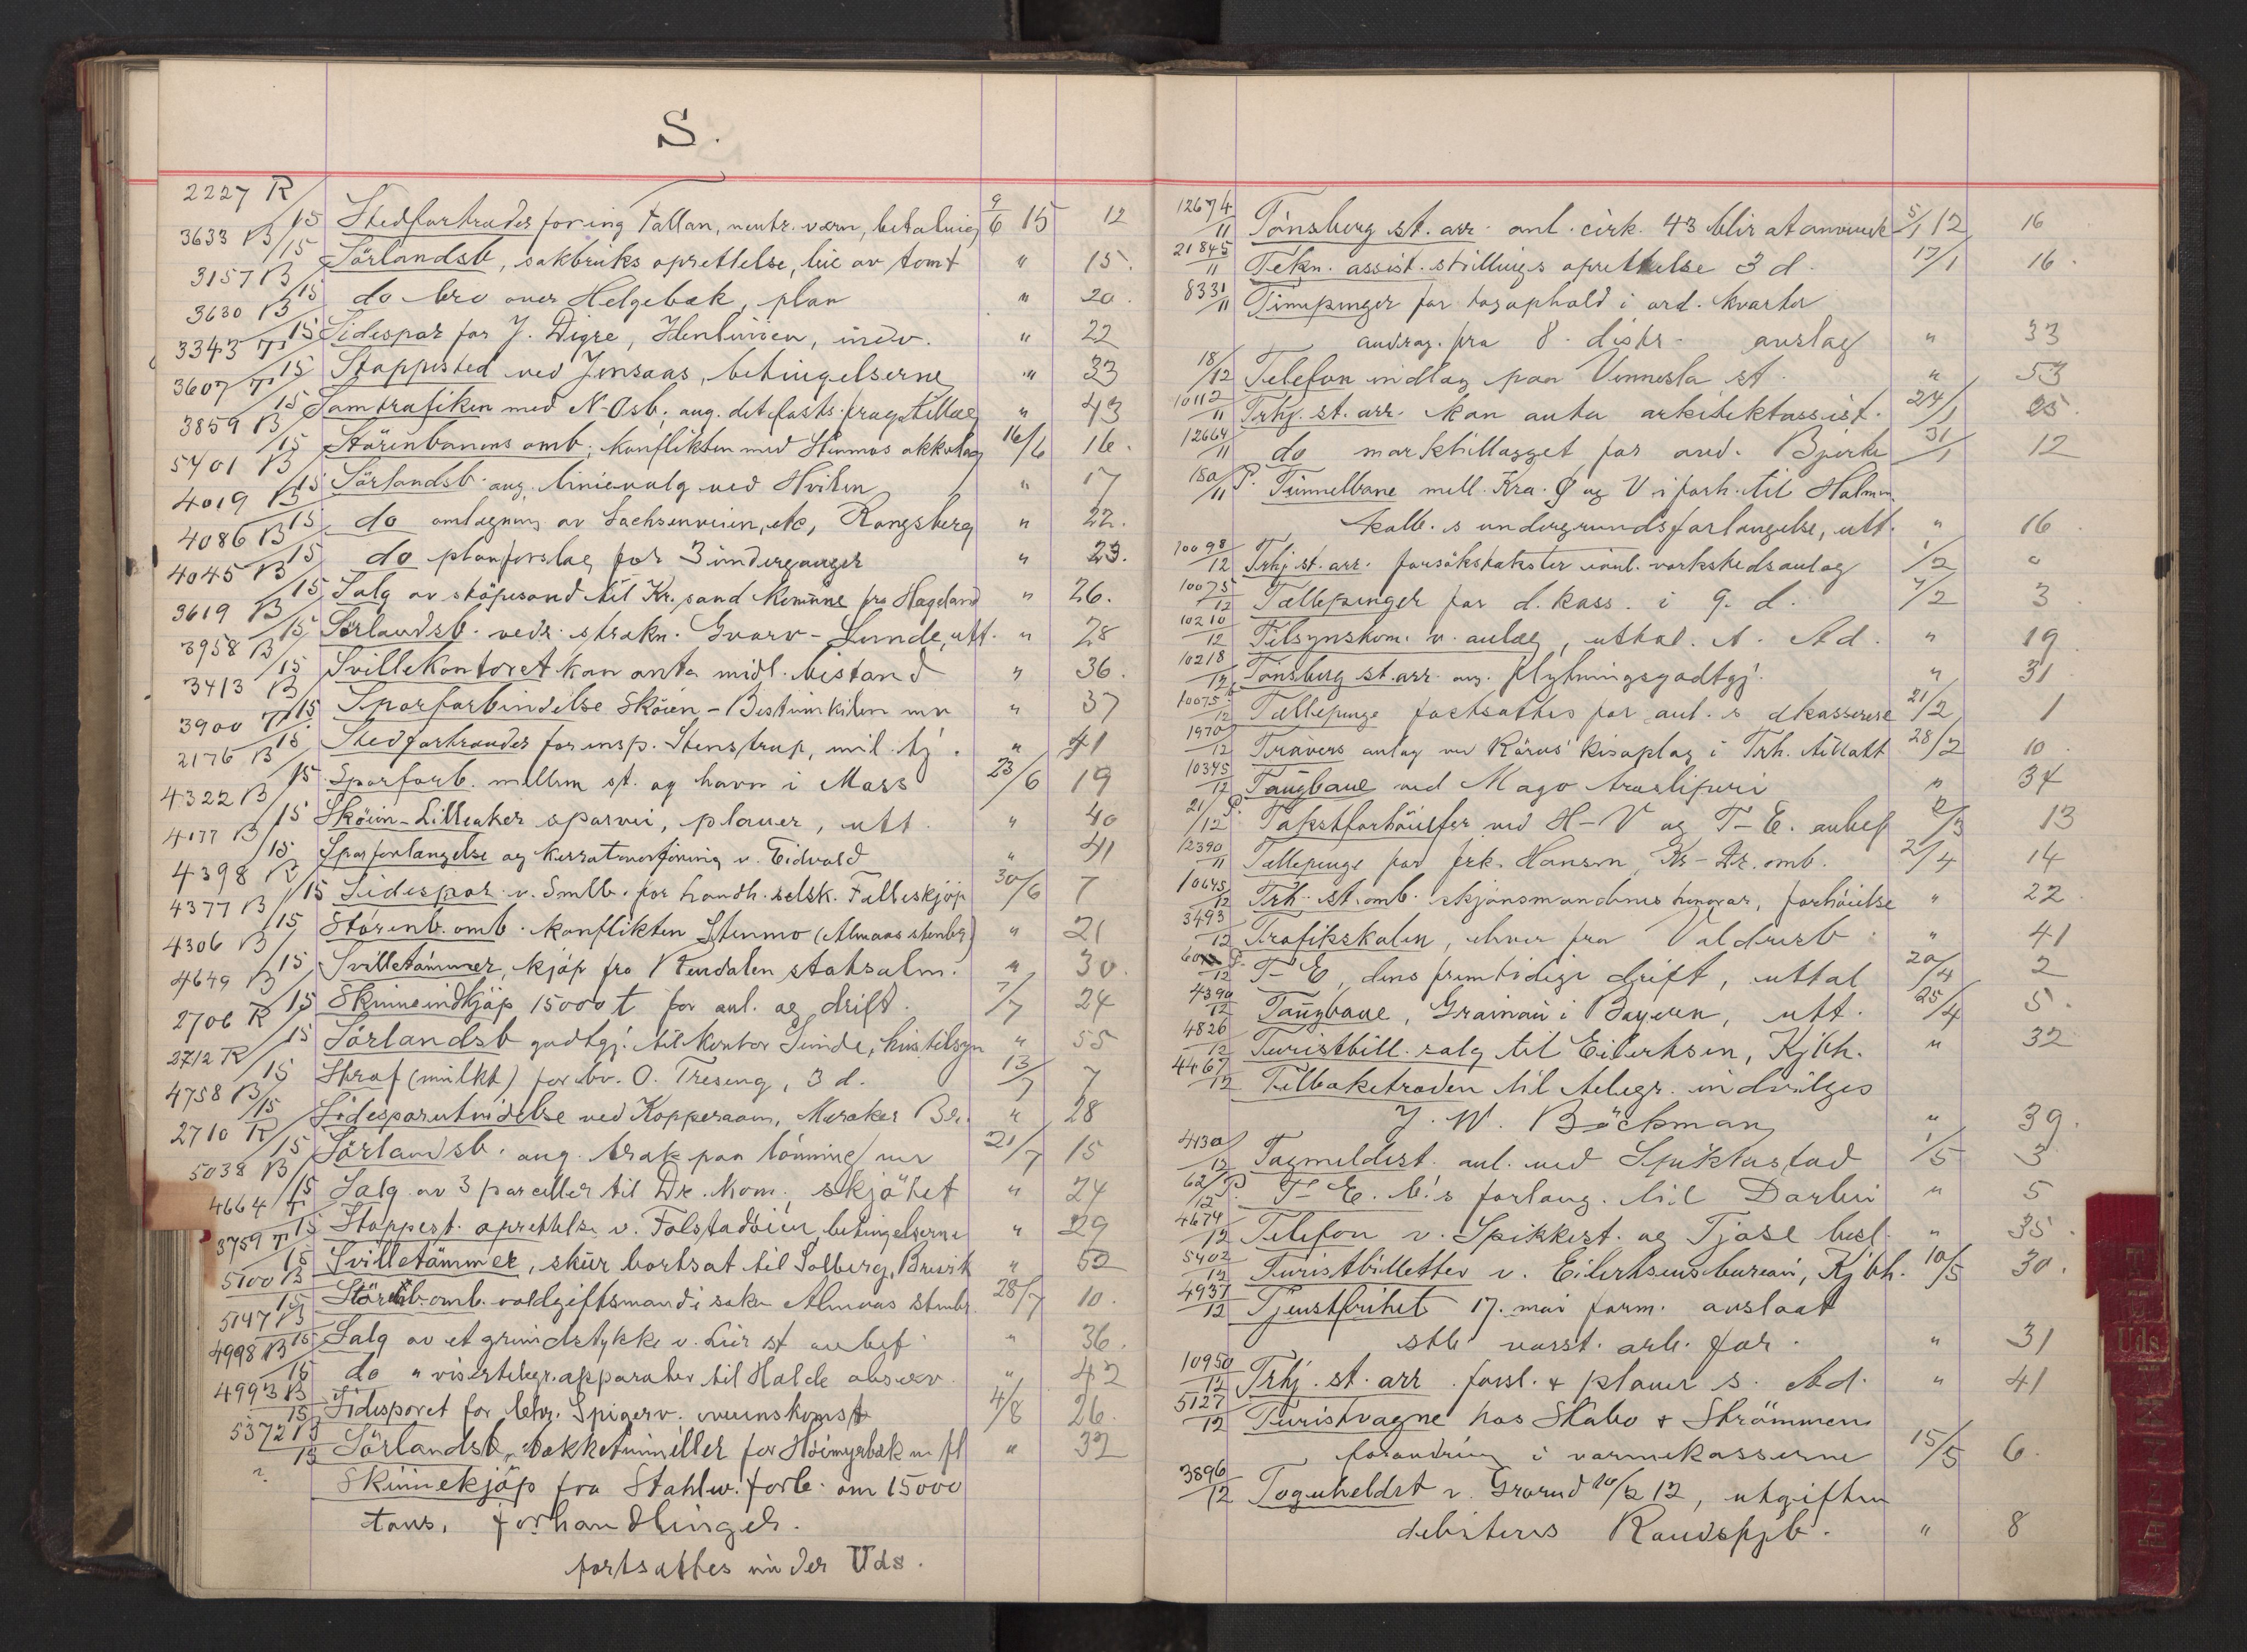 S.
2227 R/15 Stedfortræder for ing Fallan, neutr. værn, betaling 9/6 15 12
3633 B/15 Sörlandsb, sakbruks oprettelse, leie av tomt " 15.
3157 B/15 do bro over Helgebæk, plan " 20.
3630 B/15 Sidespor for J. Digre, indv. " 22
3343 T/15 Stoppested ved Jensaas, betingelserne " 33
3607 T/15 Samtrafiken med N. Osb, ang. det faste fragttillæg " 43
3859 B/15 Störenbanens omb; konflikten med Stenmos akkolag 16/6 16.
5401 B/15 Sörlandsb. ang. linievalg ved Hvilen " 17
4019 B/15 do omlægning av Sachsenveien, etc, Kongsberg " 22.
4086 B/15 do planforslag for 3 underganger " 23.
4045 B/15 Salg av stöpesand til Kr.sand kommune fra Hageland " 26.
3619 B/15 Sörlandsb. vedr. strækn. Gvarv-Lunde, utt. " 28
3958 B/15 Svillekontoret kan anta midl. bistand " 36.
3413 B/15 Sporforbindelse Sköien - Bestumkilen mv " 37
3900 T/15 Stedfortræder for insp. Stenstrup, mil. tj. " 41
2176 B/15 Sporforb. mellem st. og havn i Moss 23/6 19
4322 B/15 Sköien-Lilleaker sporvei, planer, utt. " 40
4177 B/15 Sporforlængelse og v. Eidsvold " 41
4398 R/15 Sidespor v. Smlb. for landh. selsk. Felleskjöp 30/6 7
4377 B/15 Störenb. omb. konflikten Stenmo (Almaas stenbr.) " 21
4306 B/15 Svilletömmer, kjöp fra Rendalen statsalm. " 30.
4649 B/15 Skinneindkjöp 15000 t for anl. og drift. 7/7 24
2706 R/15 Sörlandsb godtgj. til kontor Lunde, hustilsyn " 55
2712 R/15 Straf (mulkt) for bv. O. Treseng, 3 d. 13/7 7
4758 B/15 Sidesporutvidelse ved Kopperaaen, Meraker Br. " 28
2710 R/15 Sörlandsb. ang. træk paa lönning 21/7 15
5038 B/15 Salg av 3 parceller til Dr. kom. skjötet " 24
4664 T/15 Stoppest. oprettelse v. Folstadöien, betingelserne " 29
3759 T/15 Svilletömmer, skur bortsat til Solberg, Bruvik " 52
5100 B/15 Störenb. omb. voldgiftsmand i sak Almaas stenbr. 28/7 10.
5147 B/15 Salg av et grundstykke v. Lier st anbef. " 36.
4998 B/15 do " visertelegr.apparater til Halde observ. " 42
4993 B/15 Sidesporet for Chr. Spigerv. overenskomst 4/8 26.
5372 B/15 Sörlandsb, bækketunneller for Höimyrbæk m fl " 32
? Skinnekjöp fra Stahlw. forb. om 15000
tons, forhandlinger.
fortsættes under Uds.
12674/11 Tönsberg st. arr. anl. cirk. 43 blir at anvende 5/1 12 16
21845/11 Tekn. assist. stillings oprettelse 3 d. 17/1 16.
8331/11 Timepenger for togophold i ord. kvarter
andrag. fra 8. distr. avslag " 33
18/12 Telefon indlag paa Vennesla st. " 53
10112/11 Trhj. st. arr. kan anta arkitektassist. 24/1 25.
12664/11 do marktillægget for avd. Bjerke 31/1 12
150/11 P. Tunnelbane mell. Kra. Ø og V i forh. til Holmen
kolb.s undergrundsforlængelse, utt. " 16
10098/12 Trhj st. arr. forsökstakster inkl. verkstedsanlæg 1/2 "
10075/12 Tællepenger for d. kass. i 9. d. 7/2 3
10210/12 Tilsynskom. v. anlæg, uttal. A. Ad. " 19
10218/12 Tönsberg st. arr. ang. flytningsgodtgj. " 31
10075/12 Tællepenge fastsættes for anl.s dkasserere 21/2 1
1970/12 Travers anlag ved Röros' kisoplag i Trh. tillatt 28/2 10
10345/12 Taugbane ved Mago træsliperi " 34
21/12 P. Takstforhöielser ved H-V og T-E. anbef 2/3 13
12390/11 Tællepenge for frk. Hansen, Kr-Dr. omb. 2/4 14
10645/12 Trh. st. omb. skjönsmændenes honorar, forhöielse " 22
3493/12 Trafikskolen, elever fra Valdresb " 41
60/12 P. T-E, dens fremtidige drift, uttal 20/4 2
4390/12 Taugbane, Grainau i Bayern, utt. 25/4 5.
4826/12 Turistbill. salg til Eilertsen, Kjbh. " 32
4467/12 Tilbaketræden til telegr. indvilges
J. W. Böckman " 39.
4130/12 Togmeldest. anl. ved Spiktestad 1/5 3
62/12 P. T-E. b's forlæng. til Darbu " 5
4674/12 Telefon v. Spikkest. og Tjose best. " 35.
5402/12 Turistbilletter v. Eilertsens bureau, Kjbh. 10/5 30.
4937/12 Tjenstfrihet 17. mai form. avslaat
stb verkst. arb. for. " 31
10950/12 Trhj. st. arr. forsl. & planer s. Ad. " 41
5127/12 Turistvogne hos Skabo & Strömmen
forandring i varmekasserne 15/5 6.
3896/12 Toguheldet v. Grorud 10/2 12, utgiften
debiteres Randsfjb. " 8
Uds